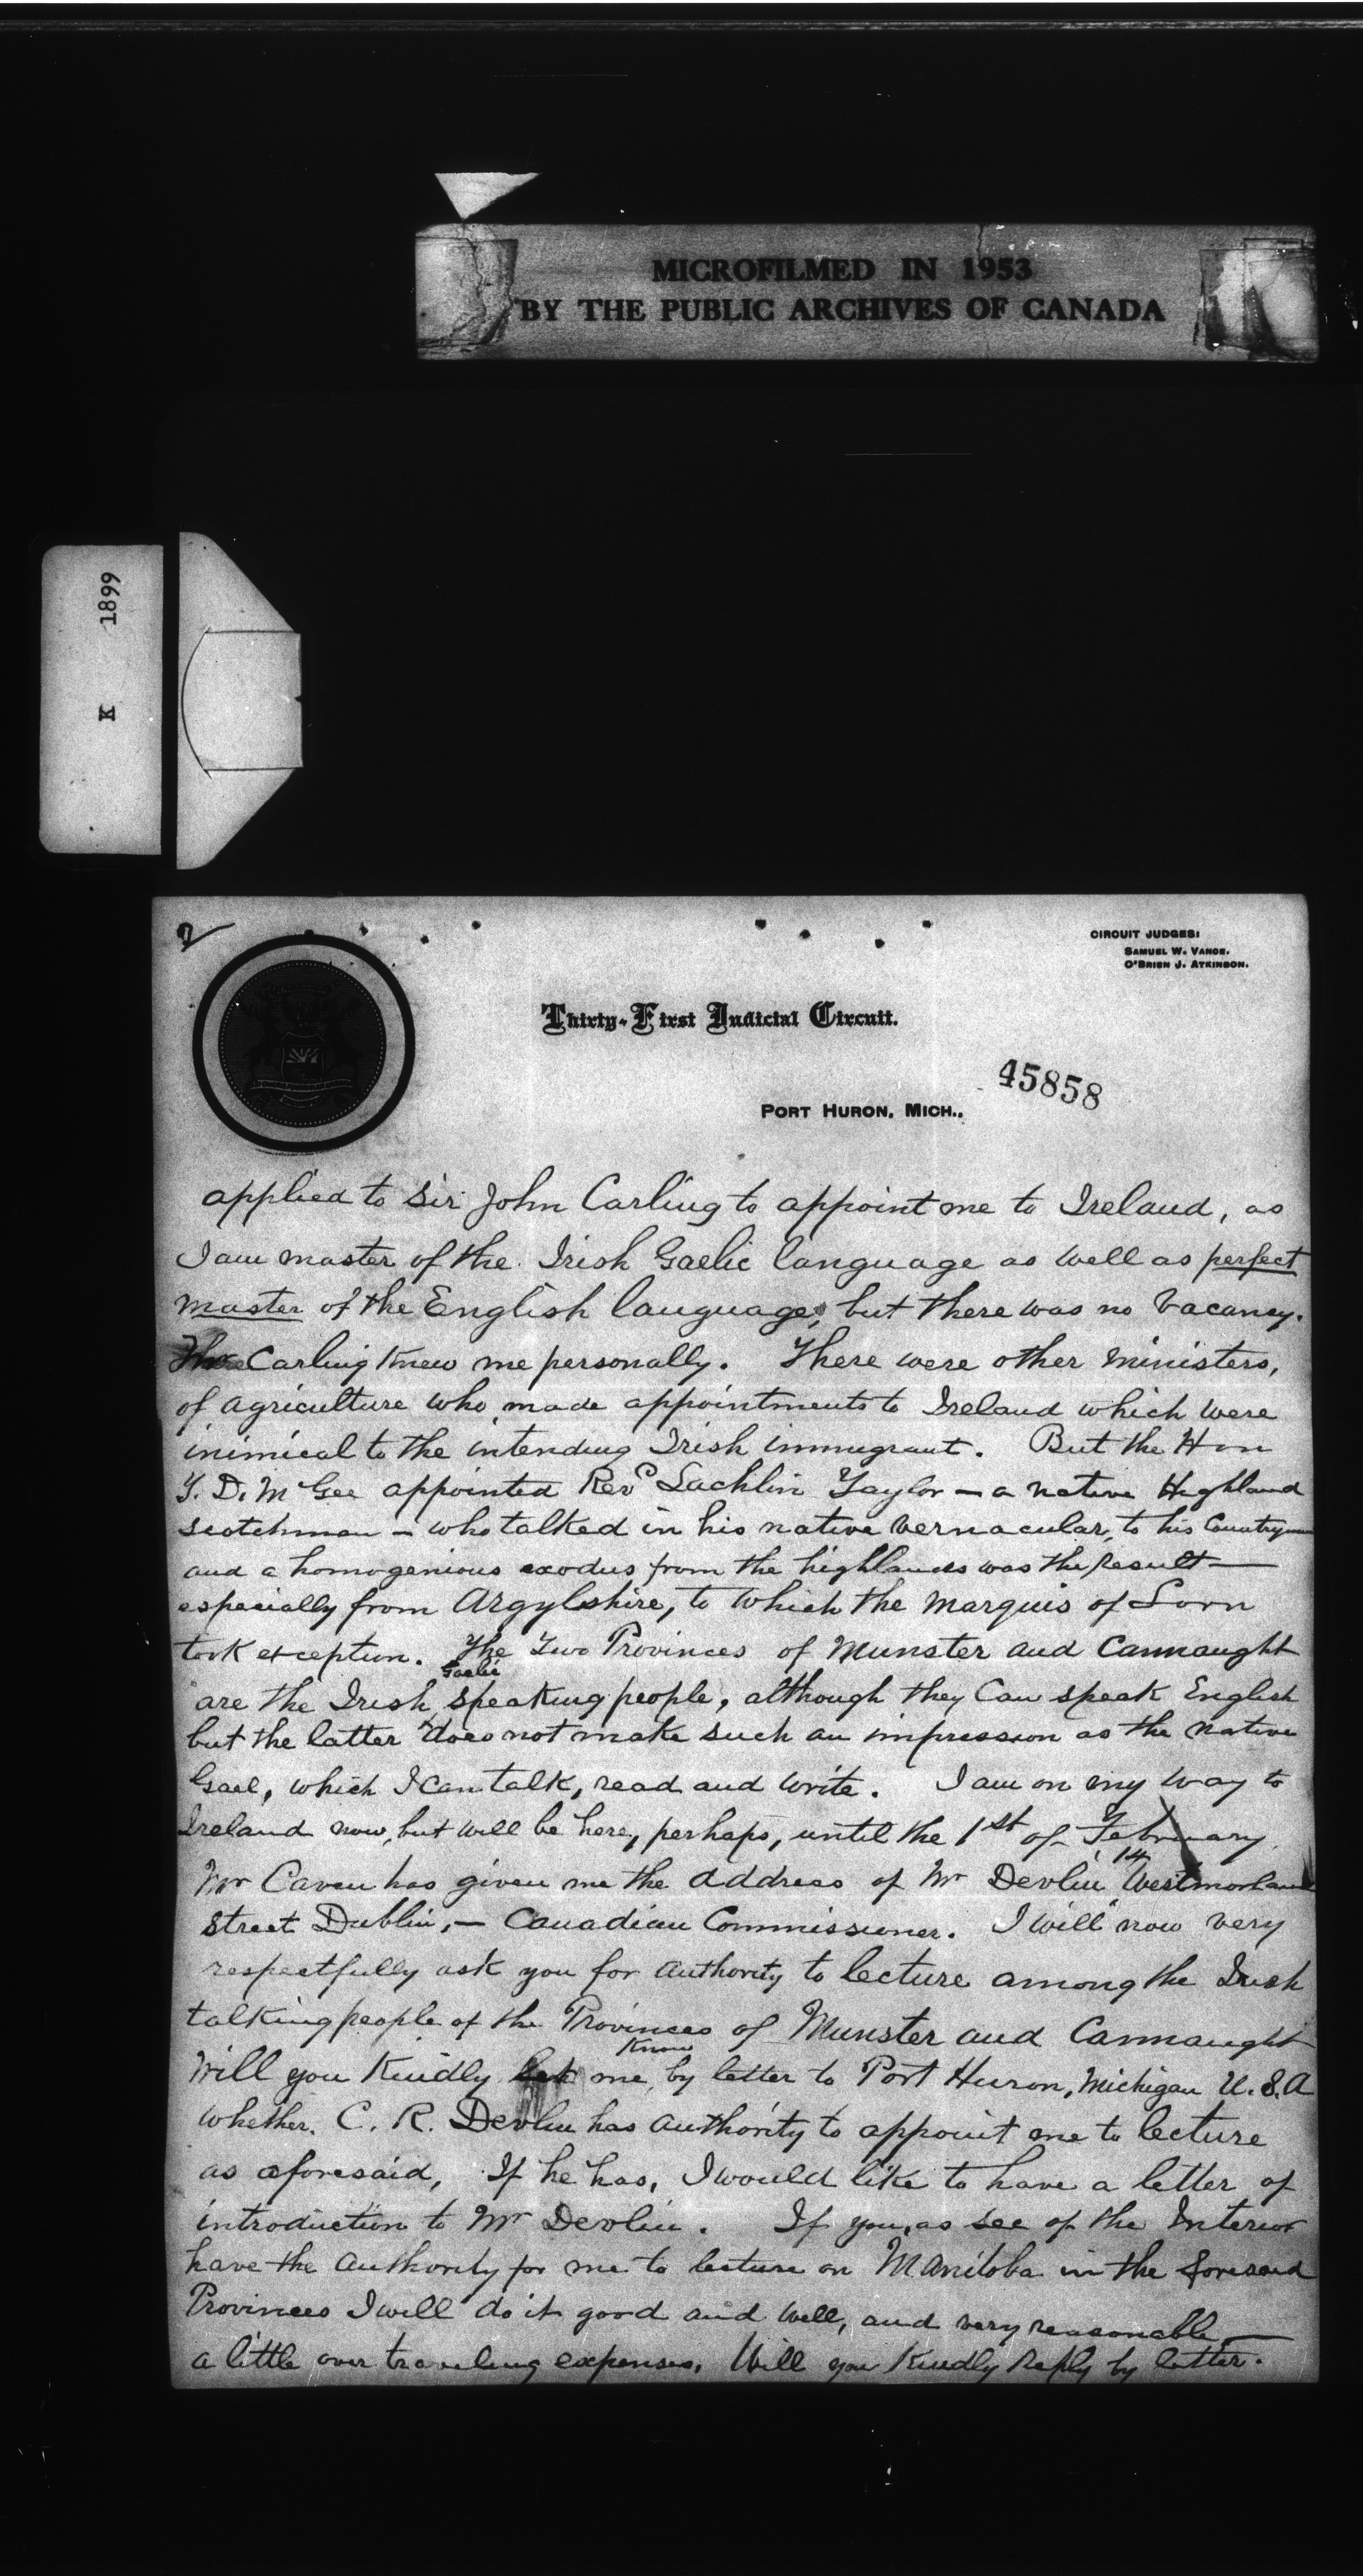 MICROFILMED IN 1953
BY THE PUBLIC ARCHIVES OF CANADA
K 1899
2
CIRCUIT JUDGES:
SAMUEL W. VANCE.
O'BRIEN J. ATKINSON.
Thirty-First Judicial Circuit.
45858
PORT HURON, MICH.,
applied to Sir John Carling to appoint me to Ireland, as
I am master of the Irish Gaelic language as well as perfect
master of the English language, but there was no vacancy.
Carling knew me personally. There were other ministers,
of agriculture who made appointments to Ireland which were
inimical to the intending Irish immigrant. But the Hon
T. D. McGee appointed Revd Lachlin Taylor – a native Highland
Scotchman – who talked in his native vernacular, to his Countrymen
and a homogenious exodus from the highlands was the result —
especially from Argylshire, to which the Marquis of Lorn
took exception. The two Provinces of Munster and Cannaught
are the Irish Gaelic speaking people, although they can speak English
but the latter does not make such an impression as the native
Gael, which I can talk, read and write. I am on my way to
Ireland now, but will be here, perhaps, until the 1st of February
Mr Caven has given me the address of Mr Devlin, 14 Westmorland
Street Dublin, – Canadian Commissioner. I will now very
respectfully ask you for authority to lecture among the Irish
talking people of the Provinces of Munster and Cannaught
Will you kindly let me know by letter to Port Huron, Michigan U.S.A
whether C. R. Devlin has authority to appoint me to lecture
as aforesaid, If he has, I would like to have a letter of
introduction to Mr Devlin. If you, as Sec of the Interior
have the authority for me to lecture on Manitoba in the foresaid
Provinces I will do it good and well, and very reasonable —
a little over traveling expenses. Will you kindly reply by letter.